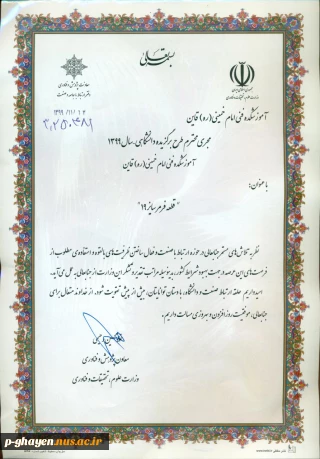 بسمه تعالی
معاونت پژوهش و فناوری
۱۳۹۹/۱۱/۱۴
آموزشکده فنی امام خمینی (ره) قاین
مجری محترم طرح برگزیده دانشگاهی سال ۱۳۹۹
آموزشکده فنی امام خمینی (ره) قاین
با عنوان:
"قطعه فرمر سایز ۱۹"
نظر به تلاش‌های مستمر جنابعالی در حوزه ارتباط با صنعت و فعال ساختن ظرفیت‌های بالقوه و استفاده‌ی مطلوب از
فرصت‌های این عرصه در جهت بهبود شرایط کشور، بدینوسیله مراتب تقدیر و تشکر این وزارت از جنابعالی به عمل می‌آید.
امید داریم حلقه ارتباط صنعت و دانشگاه، با دستان توانای‌تان، بیش از پیش تقویت شود. از خداوند متعال برای
جنابعالی، موفقیت روزافزون و بهروزی مسالت داریم.
معاون پژوهش و فناوری
وزارت علوم، تحقیقات و فناوری
p-ghayen.nus.ac.ir